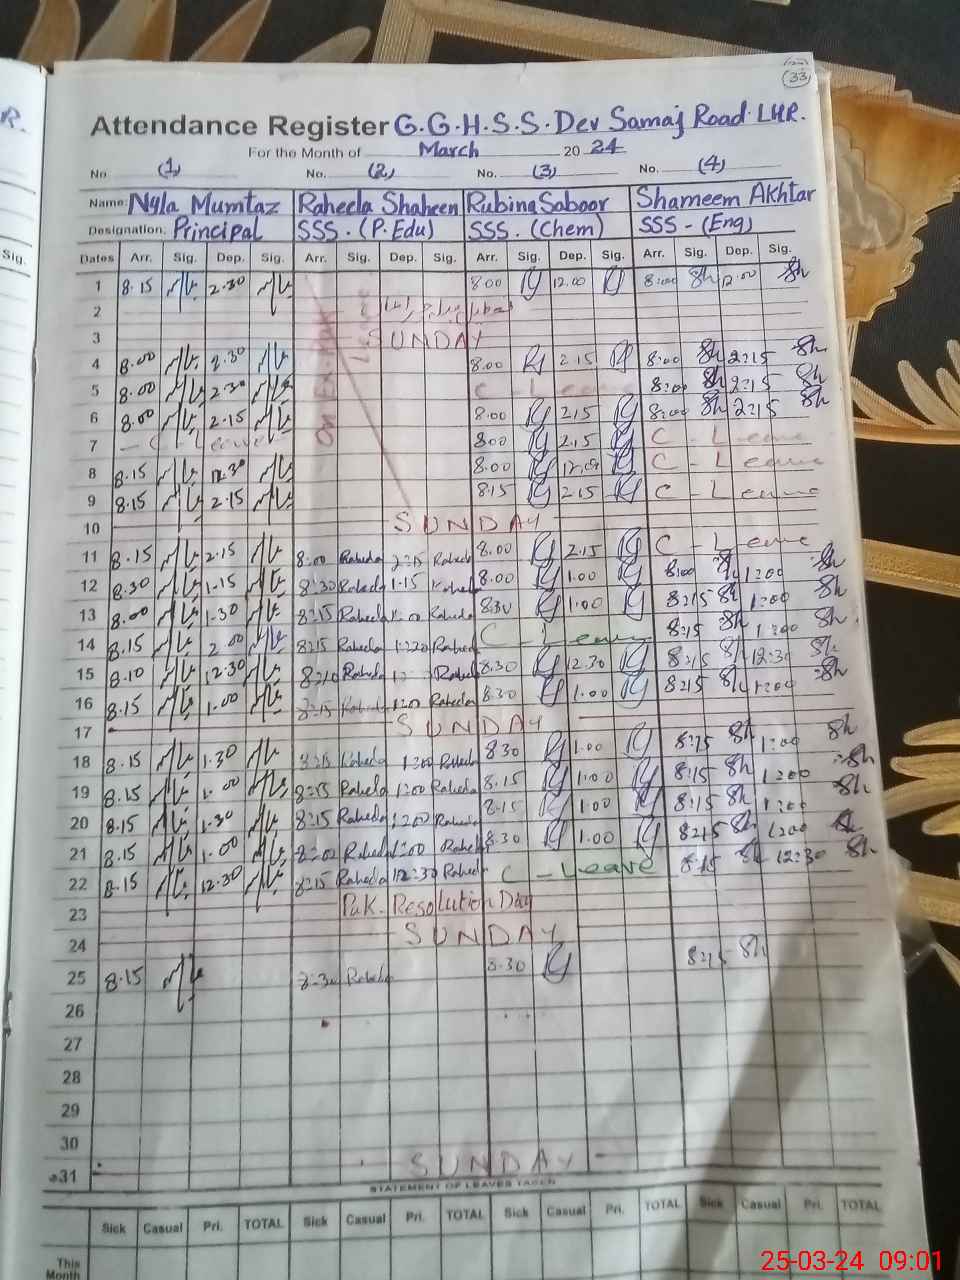 R.
(33)
Attendance Register G.G.H.S.S. Dev Samaj Road LHR.
For the Month of March 2024
No. (1) No. (2) No. (3) No. (4)
Name: Nyla Mumtaz Raheela Shaheen Rubina Saboor Shameem Akhtar
Designation: Principal SSS. (P. Edu) SSS. (Chem) SSS - (Eng)
Sig. Dates Arr. Sig. Dep. Sig. Arr. Sig. Dep. Sig. Arr. Sig. Dep. Sig. Arr. Sig. Dep. Sig.
1 8.15 2.30 8.00 12.00 8:00 Sh 12:00 Sh
2
3 SUNDAY
On Ex. Pak Leave
4 8.00 2.30 8.00 2.15 8:00 Sh 2:15 Sh
5 8.00 2.30 C - Leave 8:00 Sh 2:15 Sh
6 8.00 2.15 8.00 2.15 8:00 Sh 2:15 Sh
7 - C - Leave 8.00 2.15 C - Leave
8 8.15 12.30 8.00 C - Leave
9 8.15 2.15 8.15 2.15 C - Leave
10 SUNDAY
11 8.15 2.15 8:00 Raheela 2:15 Raheela 8.00 2.15 C - Leave
12 8.30 1.15 8:30 Raheela 1.15 Raheela 8.00 1.00 8:00 Sh 1:00 Sh
13 8.00 1.30 8:15 Raheela 1:00 Raheela 8.30 1.00 8:15 Sh 1:00 Sh
14 8.15 2.00 8:15 Raheela Raheela C - Leave 8:15 Sh 1:00 Sh
15 8.10 12.30 8:10 Raheela Raheela 8.30 12.30 8:15 Sh 12:30 Sh
16 8.15 1.00 8:15 Raheela 1:00 Raheela 8.30 1.00 8:15 Sh 1:00 Sh
17 SUNDAY
18 8.15 1.30 8:15 Raheela 1:00 Raheela 8.30 1.00 8:15 Sh 1:00 Sh
19 8.15 1.00 8:15 Raheela 1:00 Raheela 8.15 1.00 8:15 Sh 1:00 Sh
20 8.15 1.30 8:15 Raheela 1:00 Raheela 8.15 1.00 8:15 Sh 1:00 Sh
21 8.15 1.00 8:00 Raheela 1:00 Raheela 8.30 1.00 8:15 Sh 1:00 Sh
22 8.15 12.30 8:15 Raheela 12:30 Raheela C - Leave 8:15 Sh 12:30 Sh
23 Pak. Resolution Day
24 SUNDAY
25 8.15 8:30 Raheela 8.30 8:15 Sh
26
27
28
29
30
31 SUNDAY
STATEMENT OF LEAVES TAKEN
Sick Casual Pri. TOTAL Sick Casual Pri. TOTAL Sick Casual Pri. TOTAL Sick Casual Pri. TOTAL
This Month
25-03-24 09:01